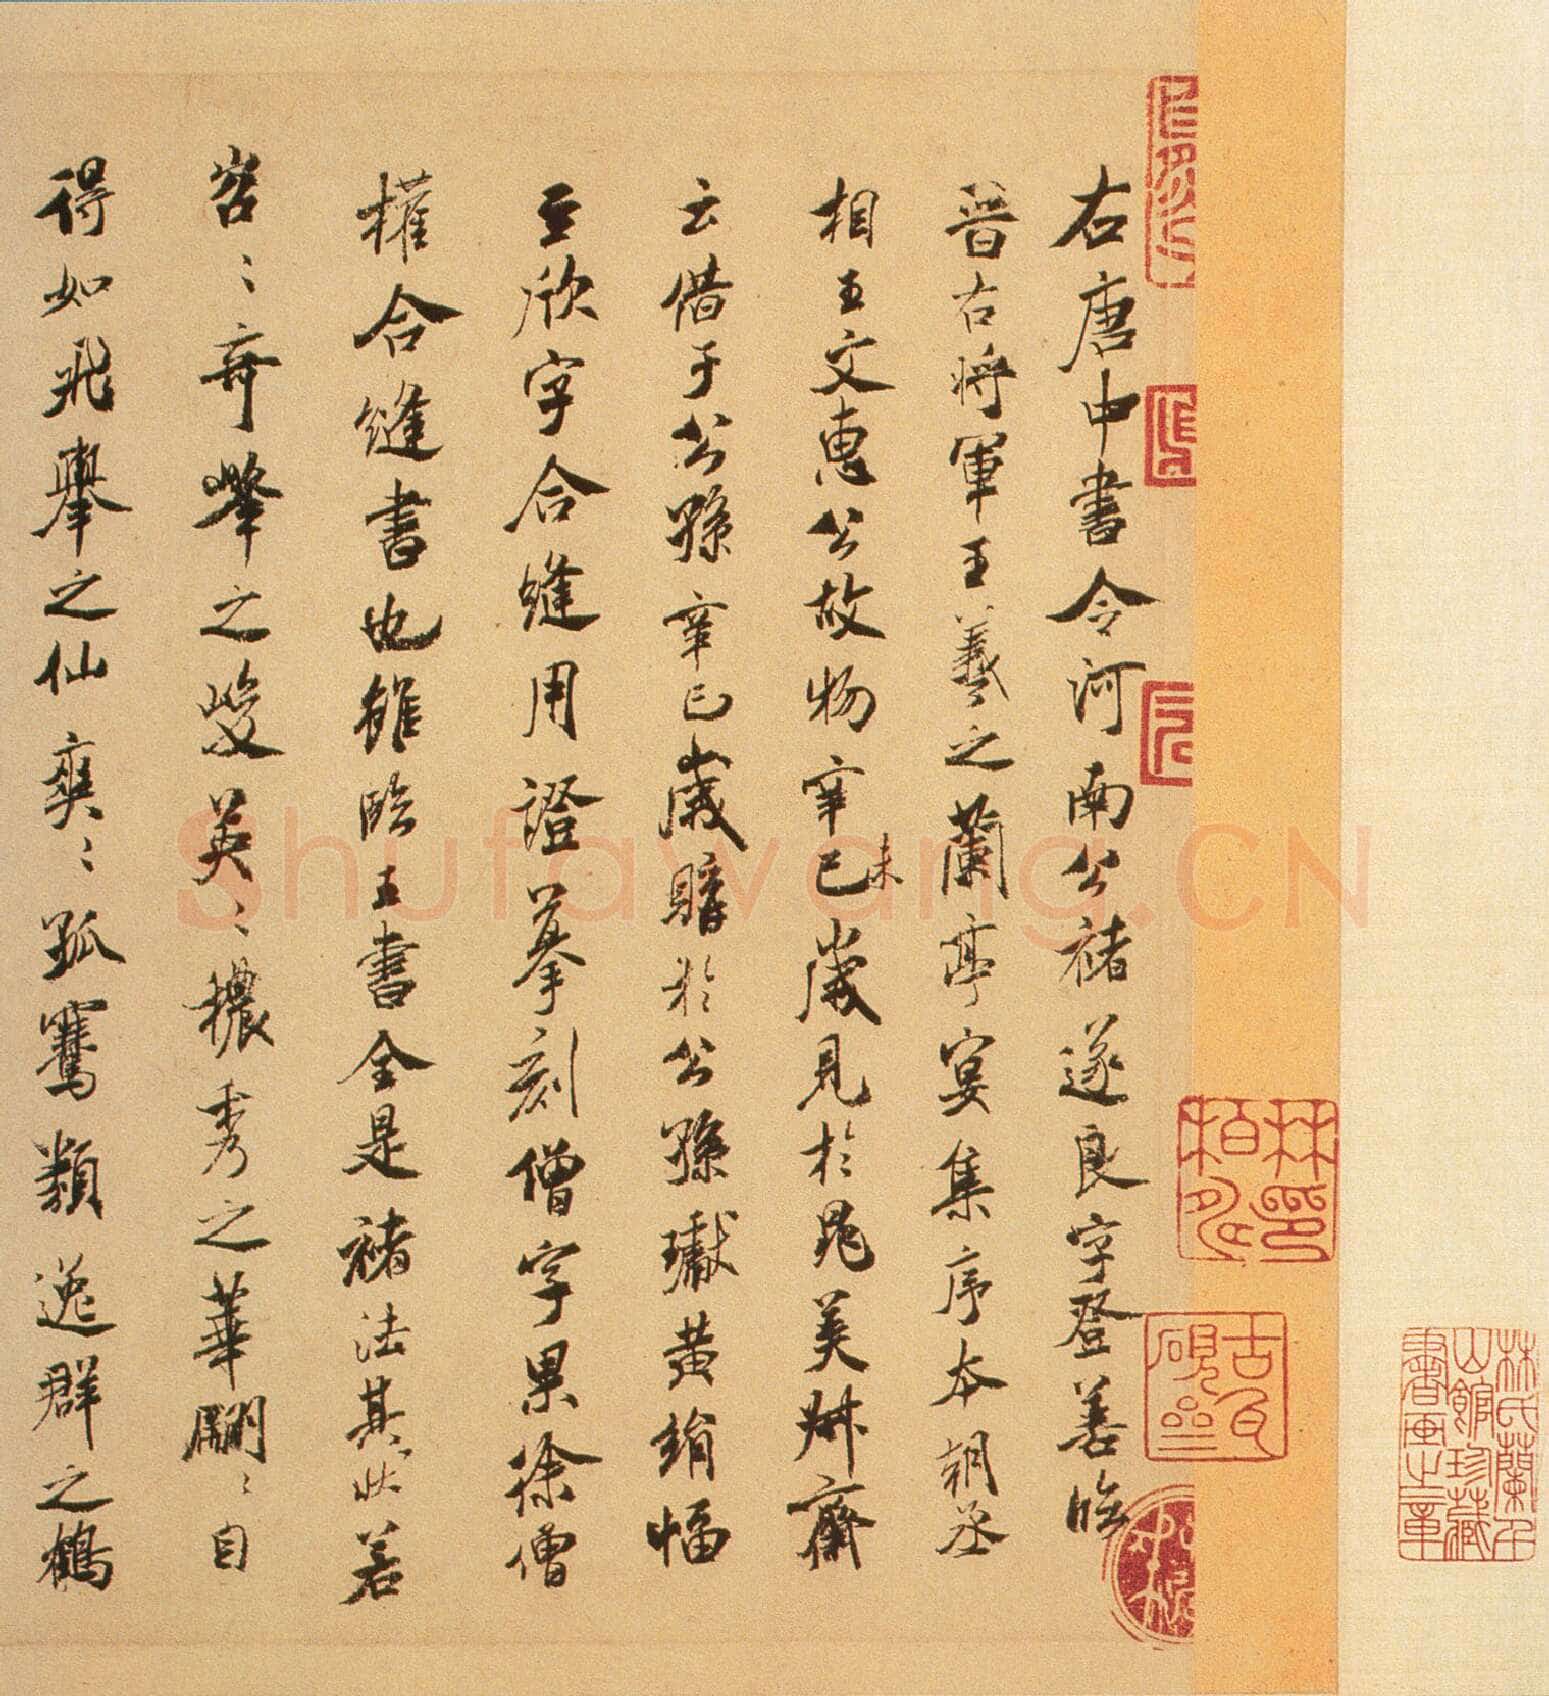 右唐中書令河南公褚遂良字登善臨
晉右將軍王羲之蘭亭宴集序本朝丞
相王文惠公故物辛巳未歲見於晁美叔齋
云借于公孫辛巳歲購於公孫瓛黃絹幅
至欣字合縫用證摹刻僧字果徐僧
權合縫書也雖臨王書全是褚法其狀若
岩〻奇峰之峻英〻穠秀之華翩〻自
得如飛舉之仙爽〻孤騫類逸群之鶴
林氏蘭千山館珍藏書畫之章
Shufawang.CN